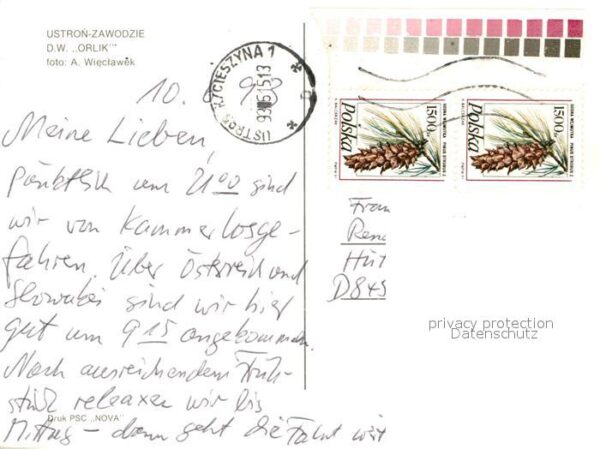 USTROŃ-ZAWODZIE
D.W. „ORLIK"
foto: A. Więcławek
K/CIESZYNA 1
10. 9. 93
Meine Lieben,
pünktlich um 21 00 sind
wir von Kammer losge-
fahren. Über Österreich und
Slowakei sind wir hier
gut um 9 15 angekommen.
Nach ausreichendem Früh-
stück relaxen wir bis
Mittag – dann geht die Fahrt weit
Druk PSC „NOVA"
1500 zł
Polska
1500 zł
Polska
Frau
Rena
Hüt
D845
privacy protection
Datenschutz